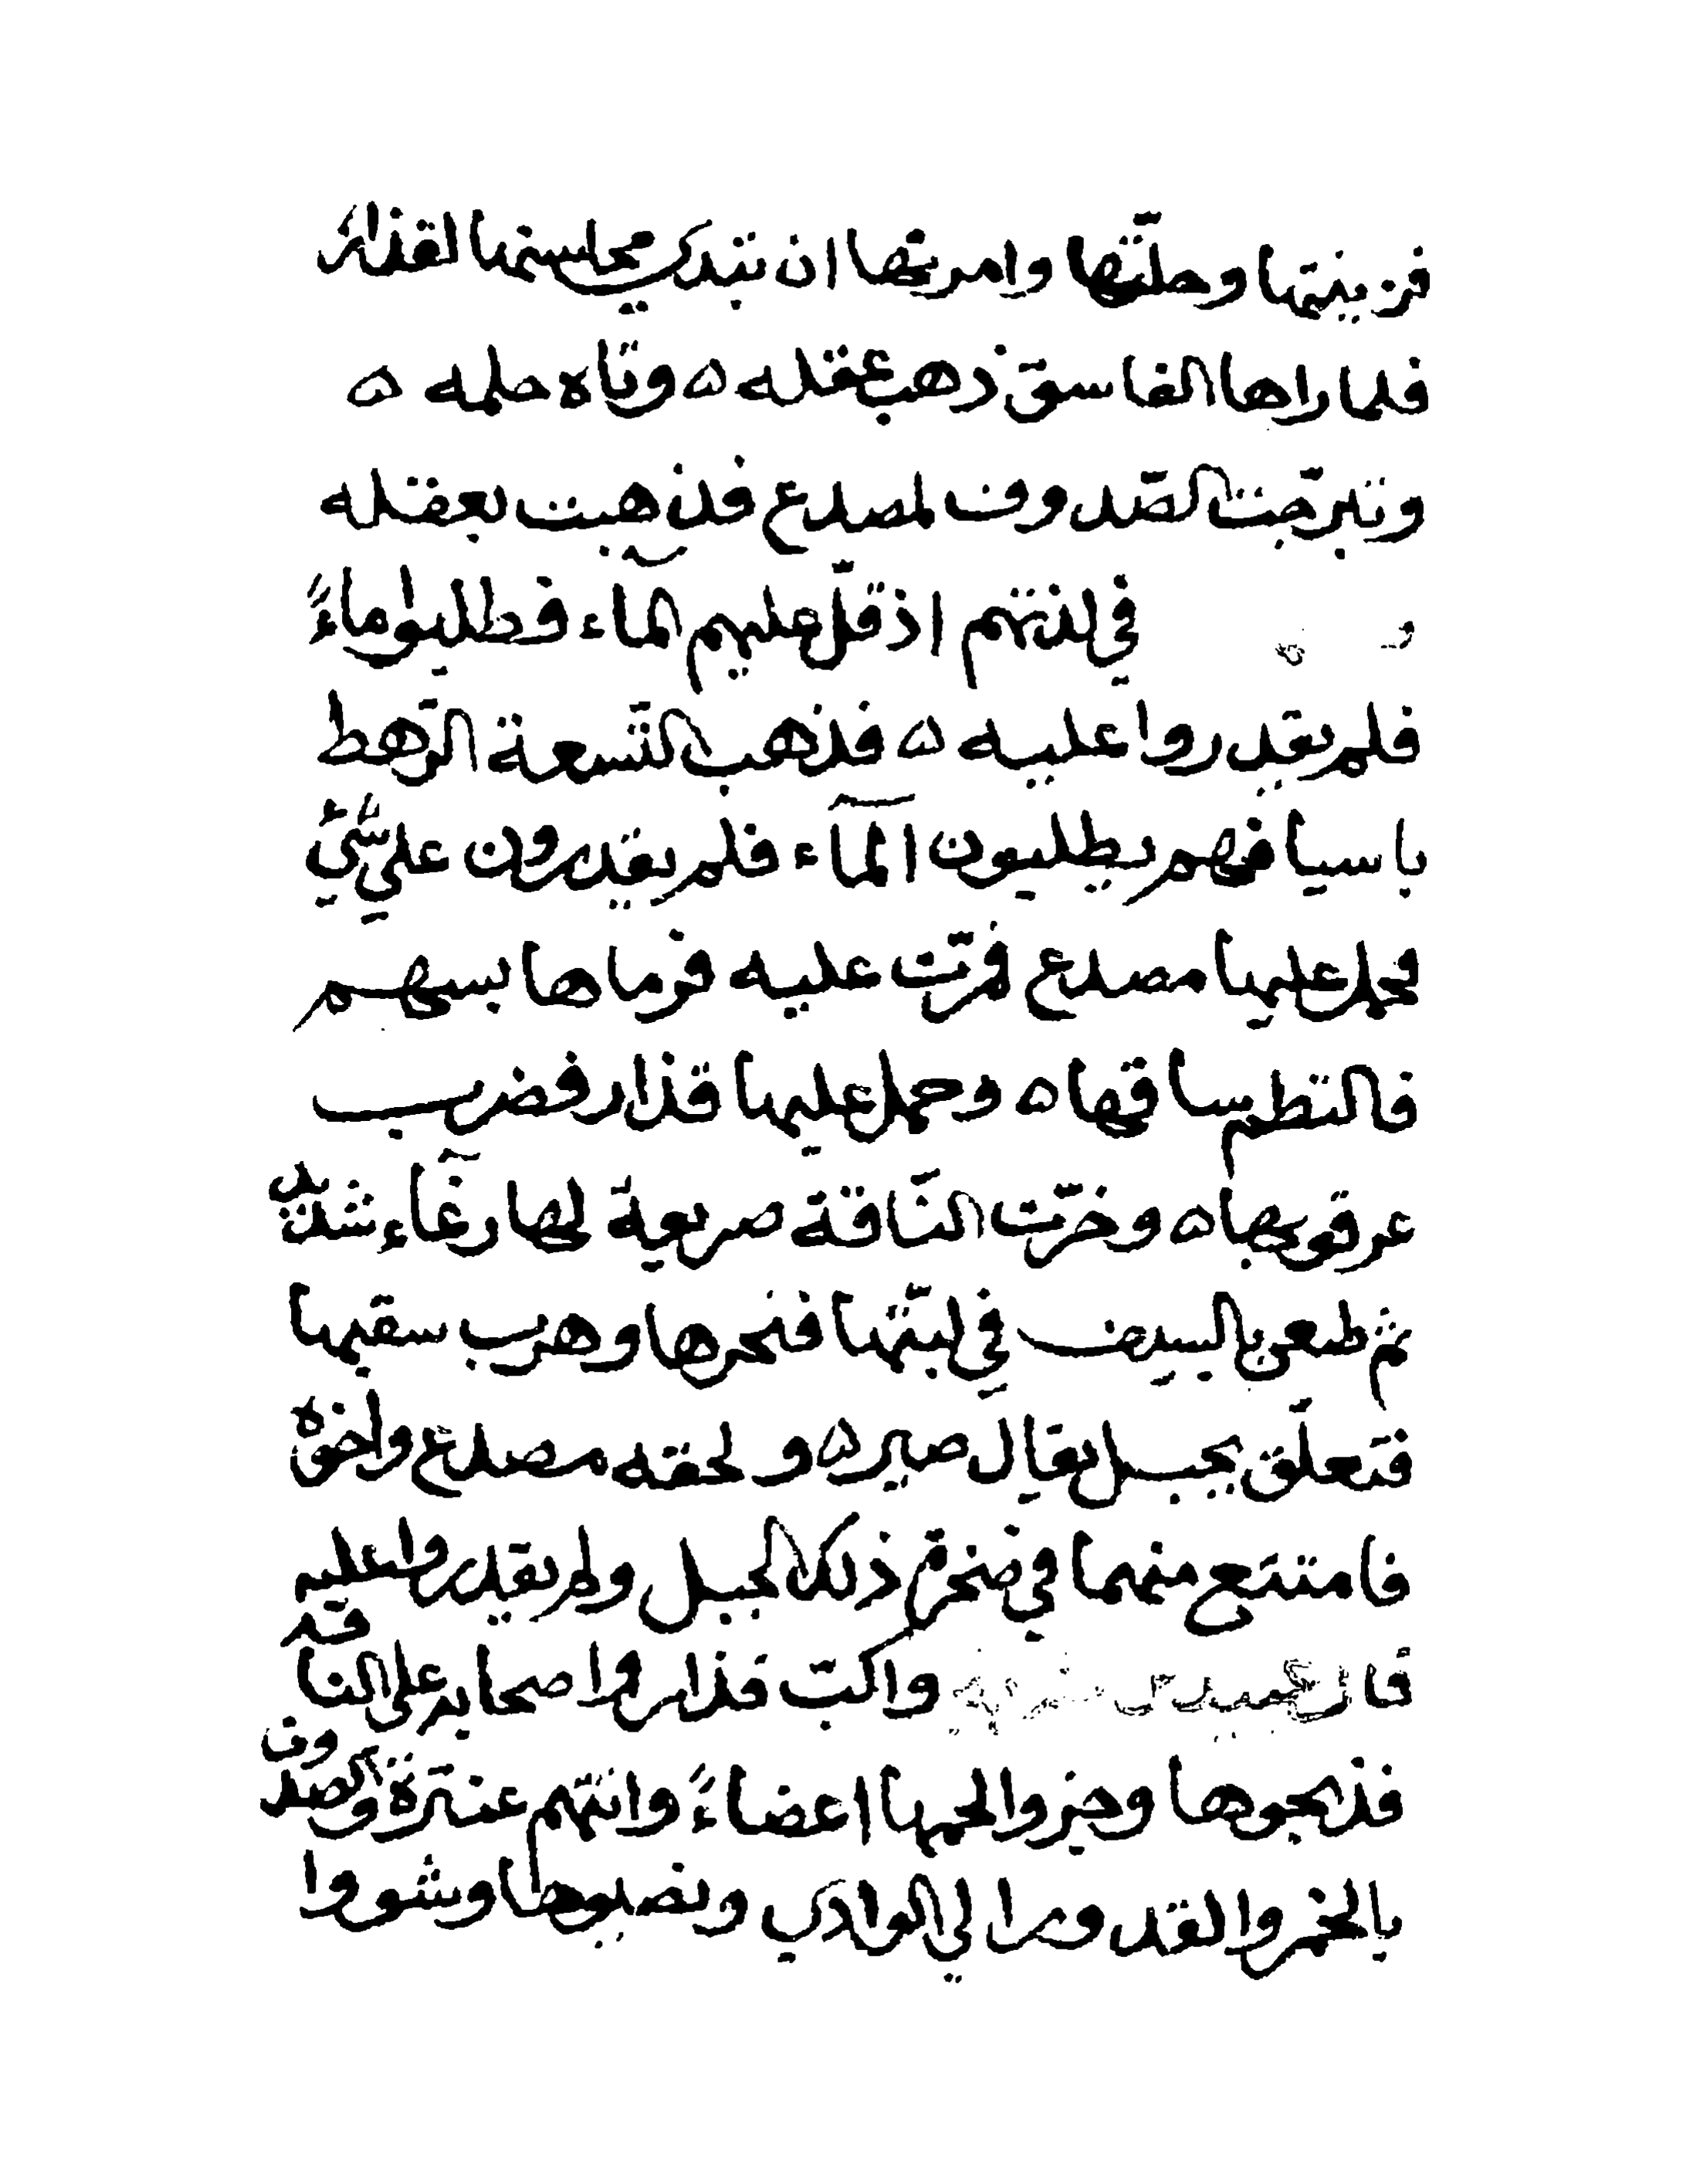 فزينتها وحلّتها وامرتها ان تبدي محاسنها لقذار
فلما راها الفاسق ذهب عقله ٥ وتاه حلمه ٥
وتبرّجت الصّدوف لمصدع فذهبت بعقله
في لذتهم اذ قلّ عليهم المآء فطلبوا ماءً
فلم يقدروا عليه ٥ فذهب التّسعة الرّهط
باسيافهم يطلبون المآء فلم يقدرون علي شيٍّ
فحمل عليها مصدع فمرّت عليه فرماها بسهم
فالتطم ساقها ٥ وحمل عليها قذار فضرب
عرقوبها ٥ وخرّت النّاقة صريعة لها رغآء شديد
ثم طعن بالسيف في لبّتها فنحرها وهرب سقيها
فتعلّق بجبل يقال صير ٥ ولحقه مصدع واخوه
فامتنع منهما في ضخرة ذلك الجبل ولم يقدروا عليه
فار واكبّ قذار واصحابه علي الناقه
فذبحوها وحيزوا لحمها اعضاءً واتتهم عنتزة والصّدوف
بالخمر والقدور الي الوادي ونصبوها وشووا